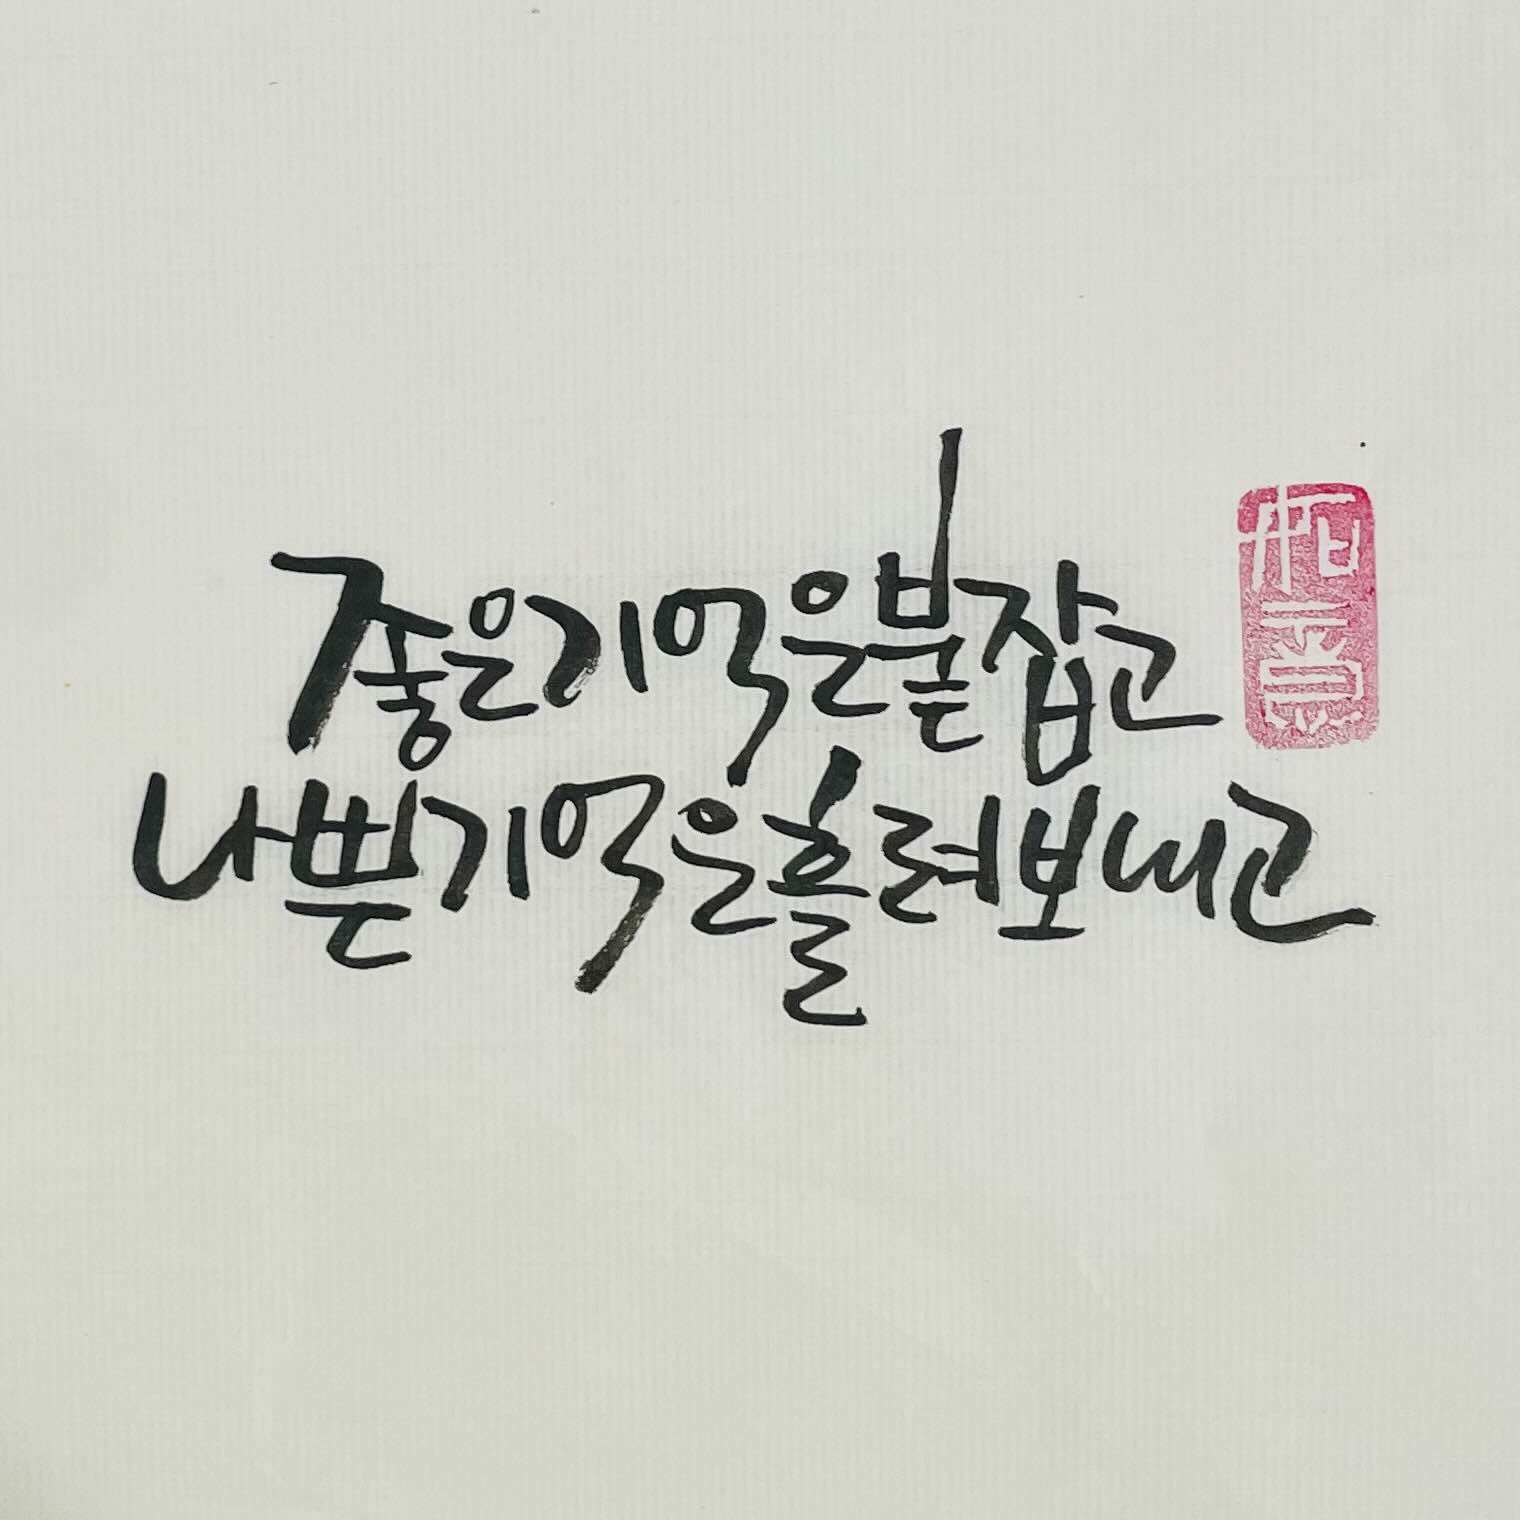 좋은기억은붙잡고
나쁜기억은흘려보내고